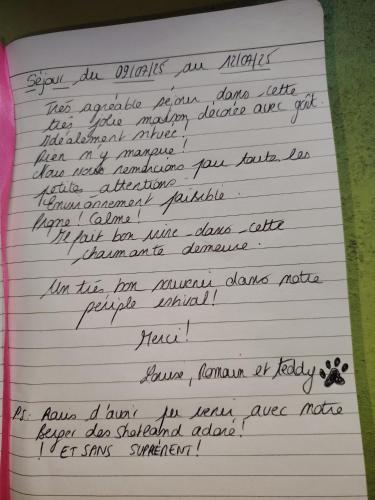 Séjour du 09/07/25 au 12/07/25
Très agréable séjour dans cette
très jolie maison, décorée avec goût.
Idéalement située.
Rien n'y manque!
Nous vous remercions pour toutes les
petites attentions.
Environnement paisible.
Propre! Calme!
Il fait bon vivre dans cette
charmante demeure.
Un très bon souvenir dans notre
périple estival!
Merci!
Louise, Romain et Teddy
PS: Ravis d'avoir pu venir avec notre
Berger des Shetland adoré!
! ET SANS SUPPLÉMENT!